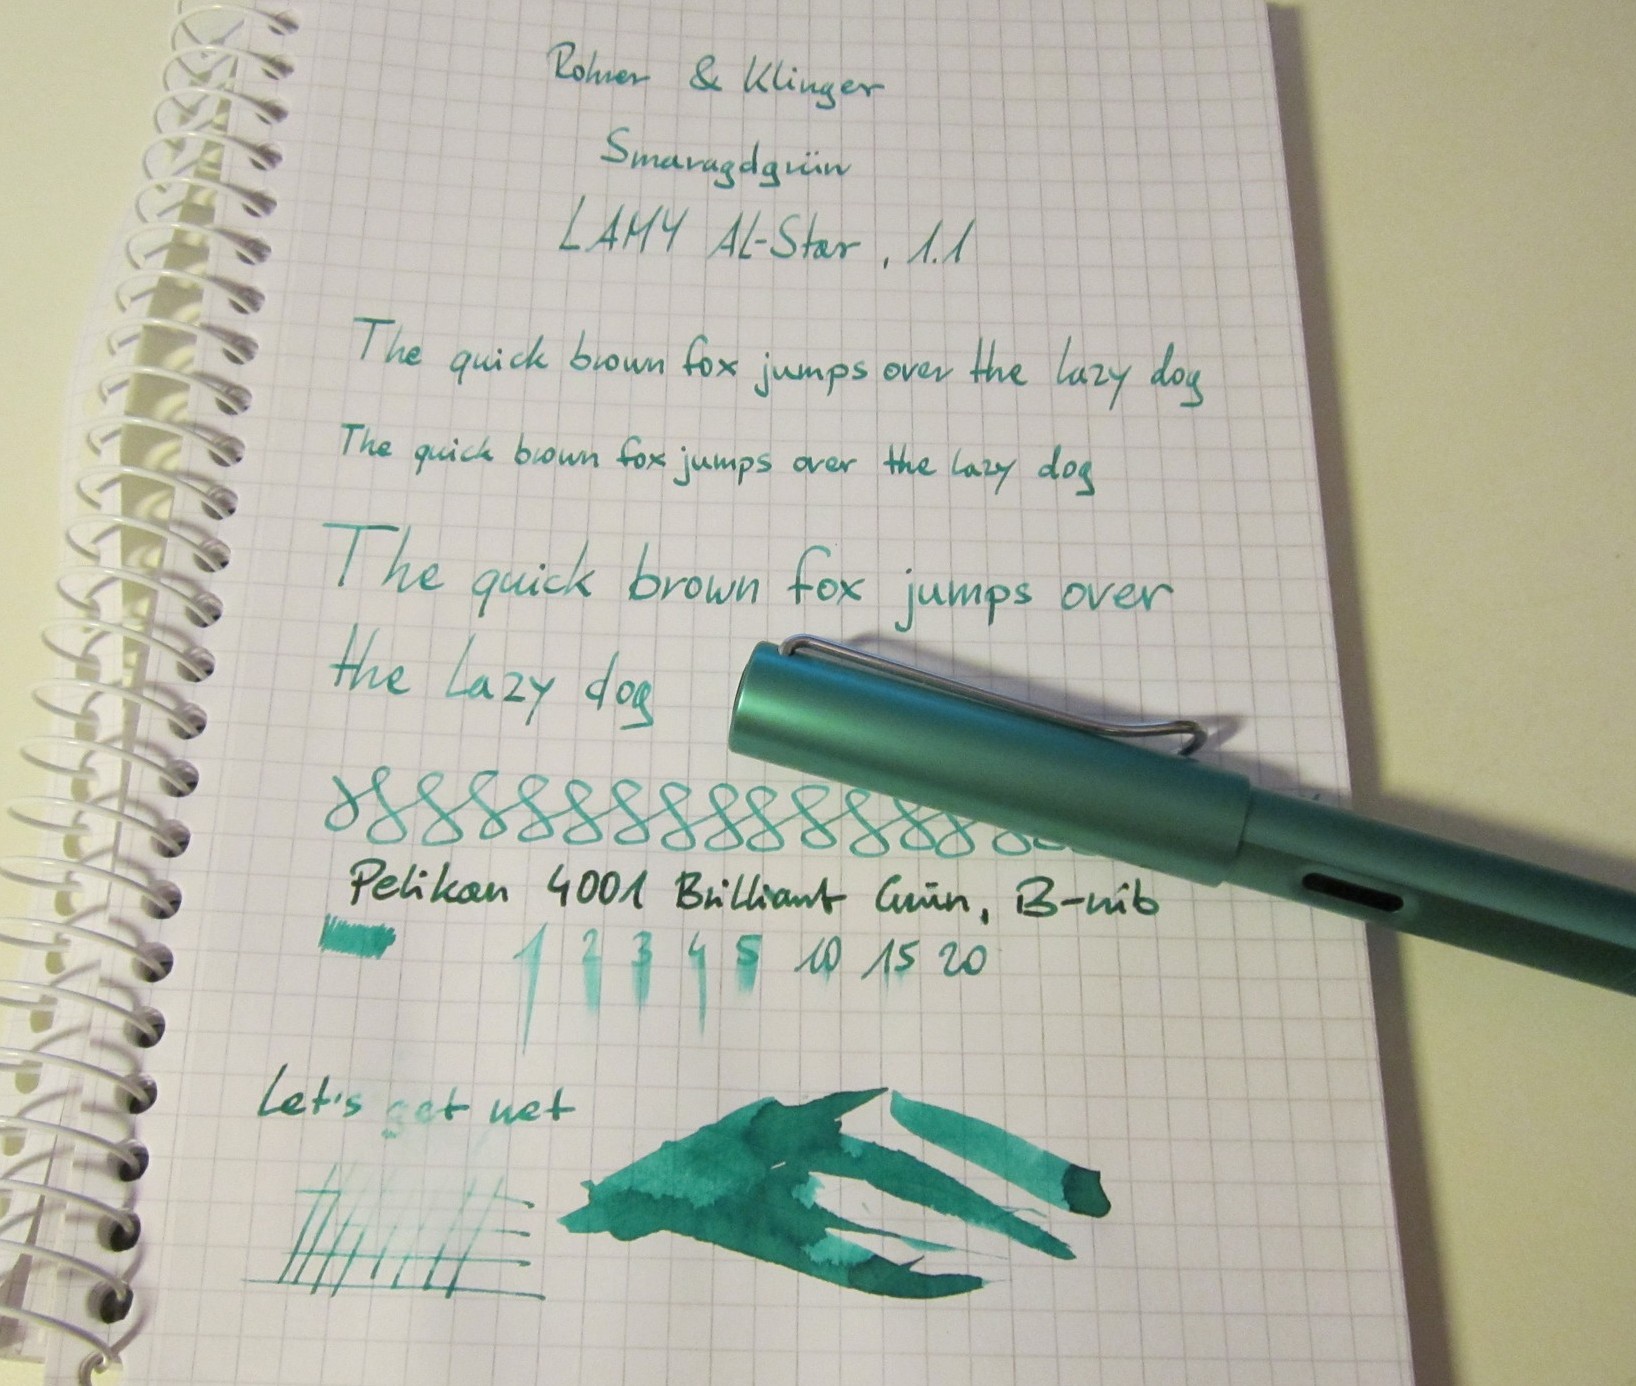 Rohrer & Klinger
Smaragdgrün
LAMY AL-Star, 1.1
The quick brown fox jumps over the lazy dog
The quick brown fox jumps over the lazy dog
The quick brown fox jumps over
the Lazy dog
Pelikan 4001 Brilliant Grün, B-nib
1 2 3 4 5 10 15 20
Let's get wet